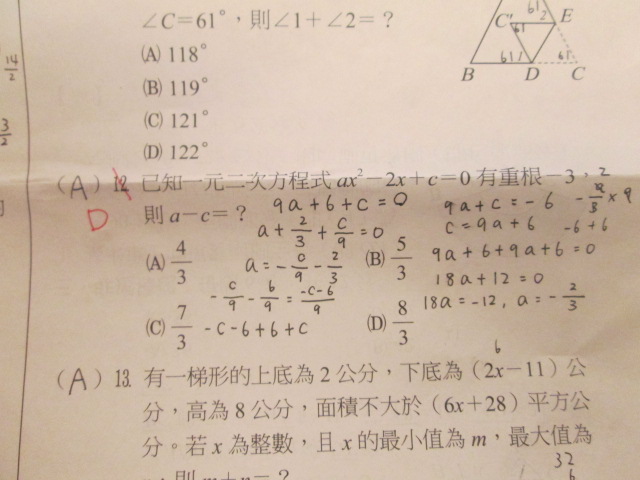 ∠C=61°，則∠1+∠2=？
(A) 118°
(B) 119°
(C) 121°
(D) 122°
C' 61 2 E
61
61 1 61
B D C
14/2
3/2
(A) 12. 已知一元二次方程式 ax²−2x+c=0 有重根−3，
D
則 a−c=？
9a+6+c=0
a+2/3+c/9=0
a=−c/9−2/3
−c/9−6/9=(−c−6)/9
−c−6+6+c
9a+c=−6
c=9a+6 −6+6
9a+6+9a+6=0
18a+12=0
18a=−12, a=−2/3
(A) 4/3
(B) 5/3
(C) 7/3
(D) 8/3
(A) 13. 有一梯形的上底為 2 公分，下底為（2x−11）公
6
分，高為 8 公分，面積不大於（6x+28）平方公
分。若 x 為整數，且 x 的最小值為 m，最大值為
則 m+n=？
32
6